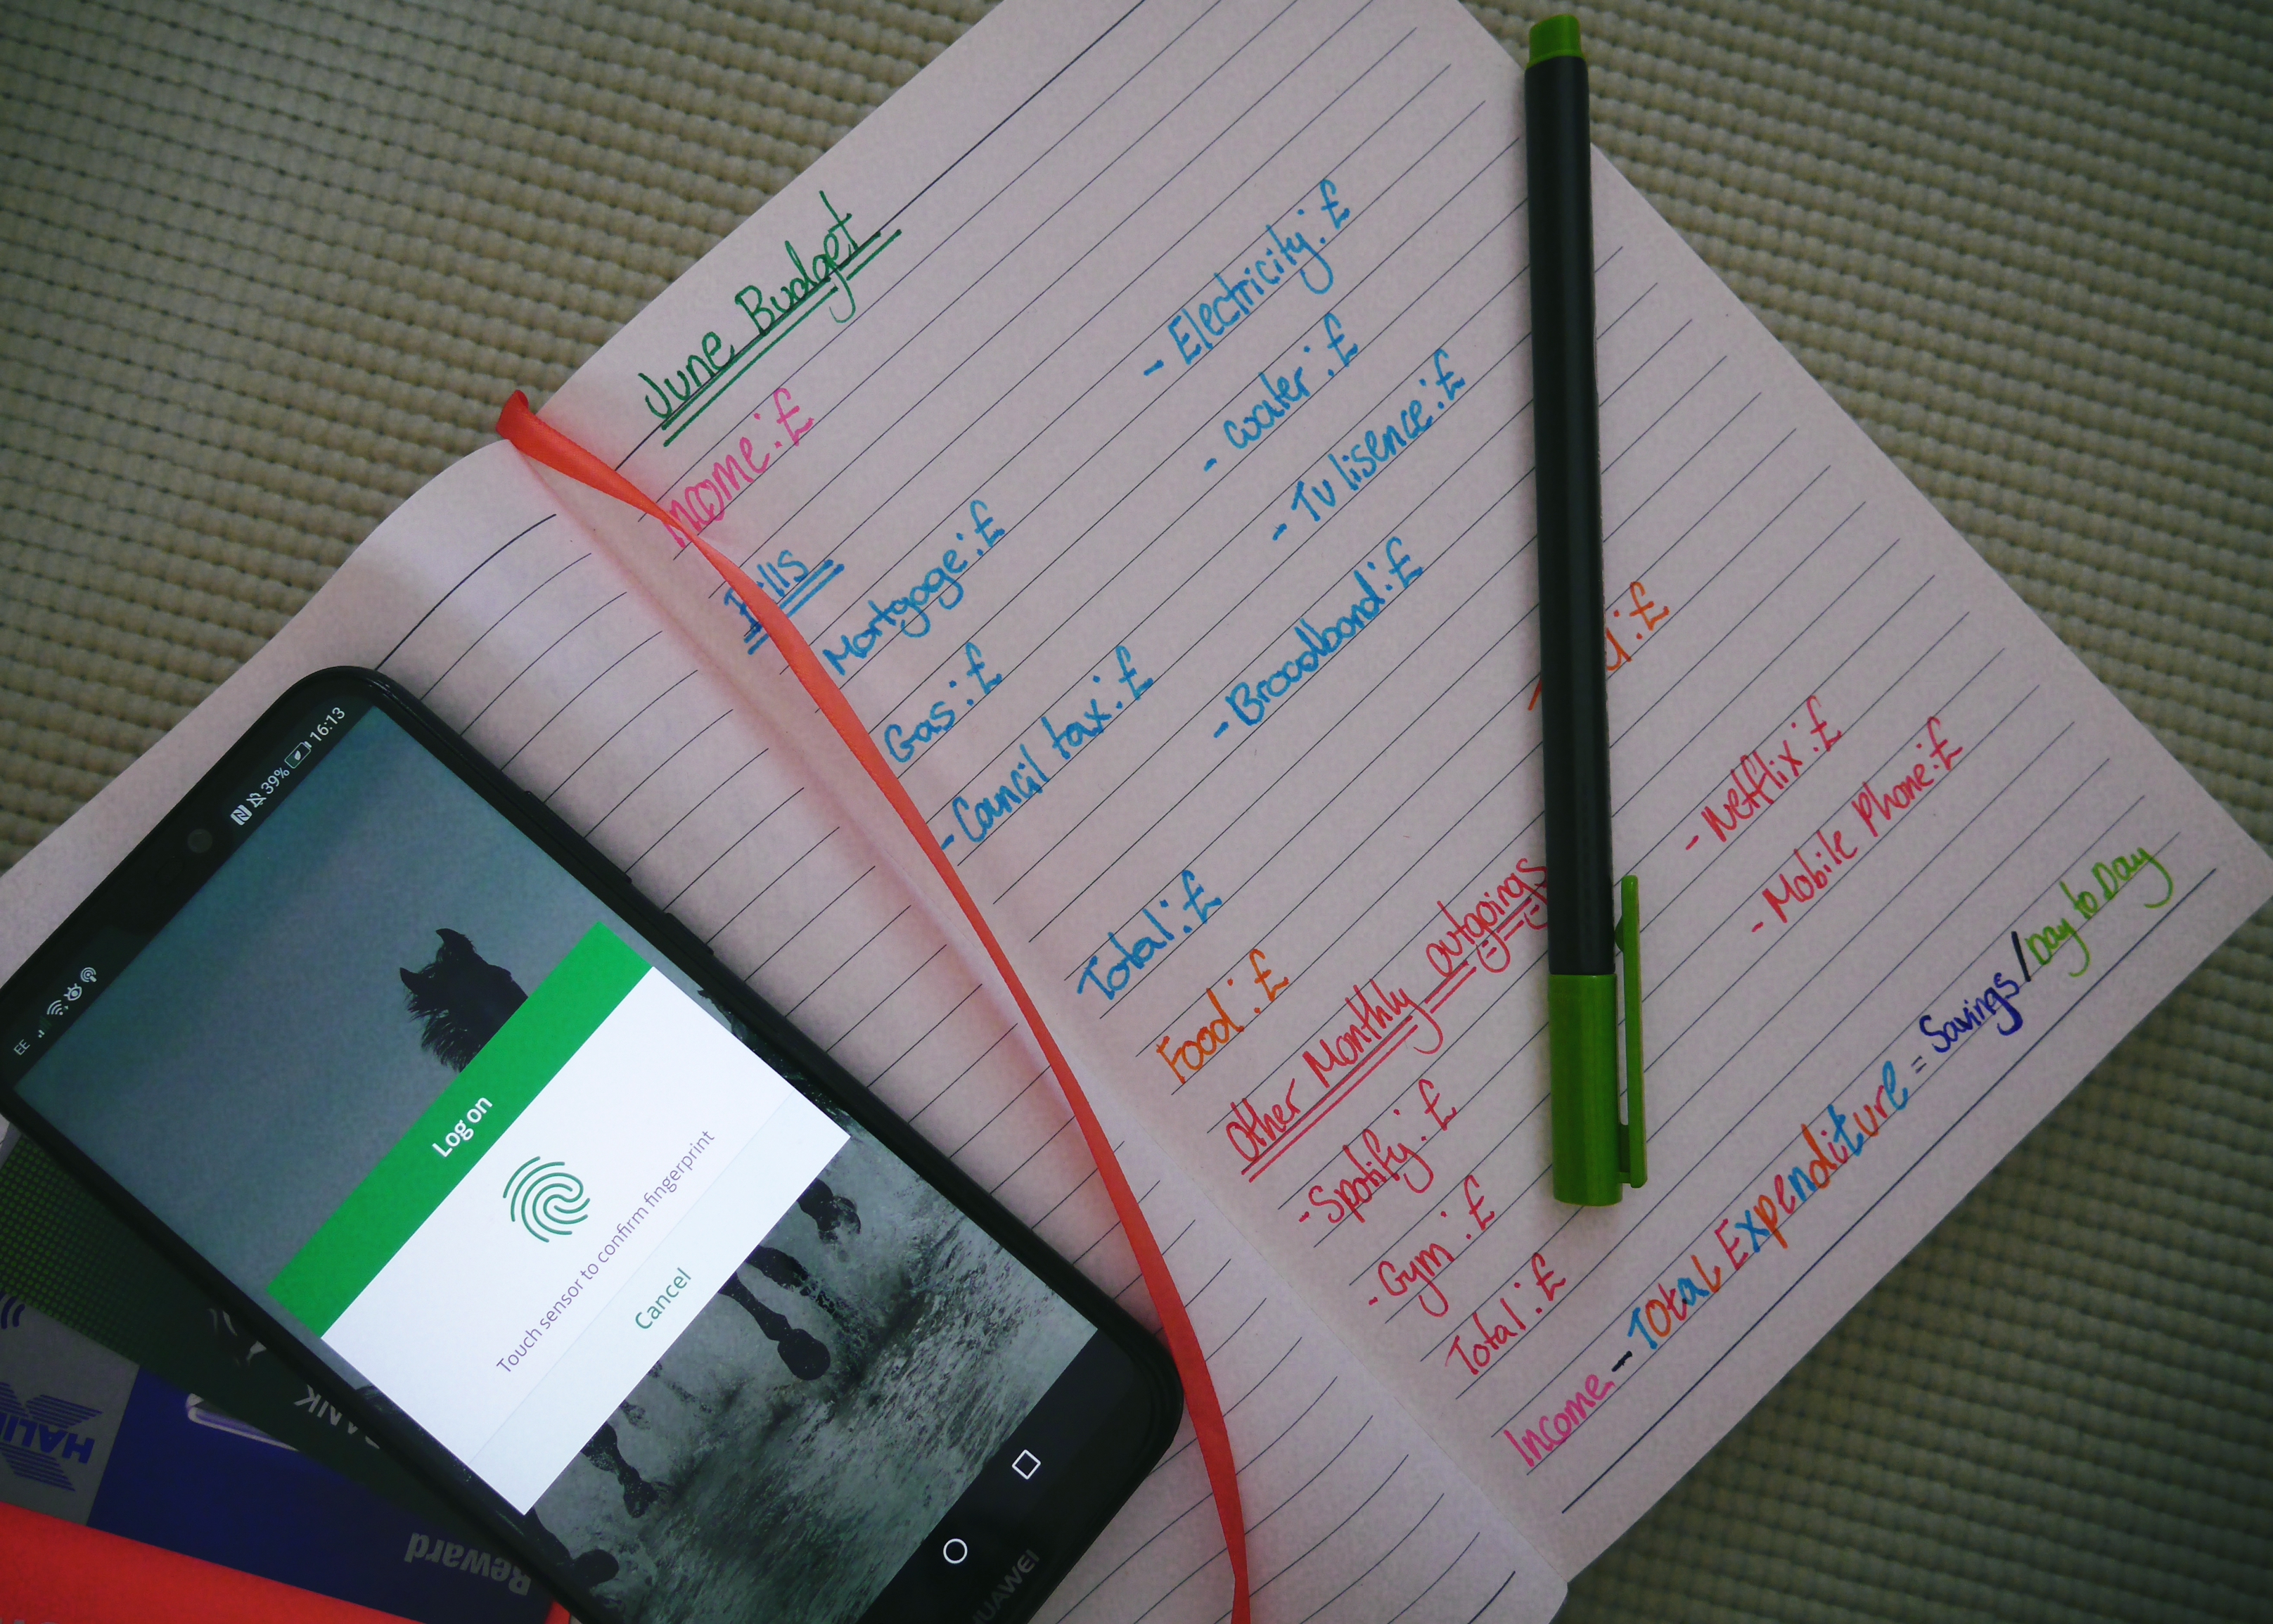 June Budget
Income: £
Bills
Mortgage: £
- Electricity: £
Gas: £
- Water: £
- Council tax: £
- TV lisence: £
- Broadband: £
Total: £
Food: £
: £
Other Monthly outgoings
- Spotify: £
- Netflix: £
- Gym: £
- Mobile Phone: £
Total: £
Income - Total Expenditure = Savings/Day to Day
EE
39% 16:13
Log on
Touch sensor to confirm fingerprint
Cancel
HUAWEI
Reward